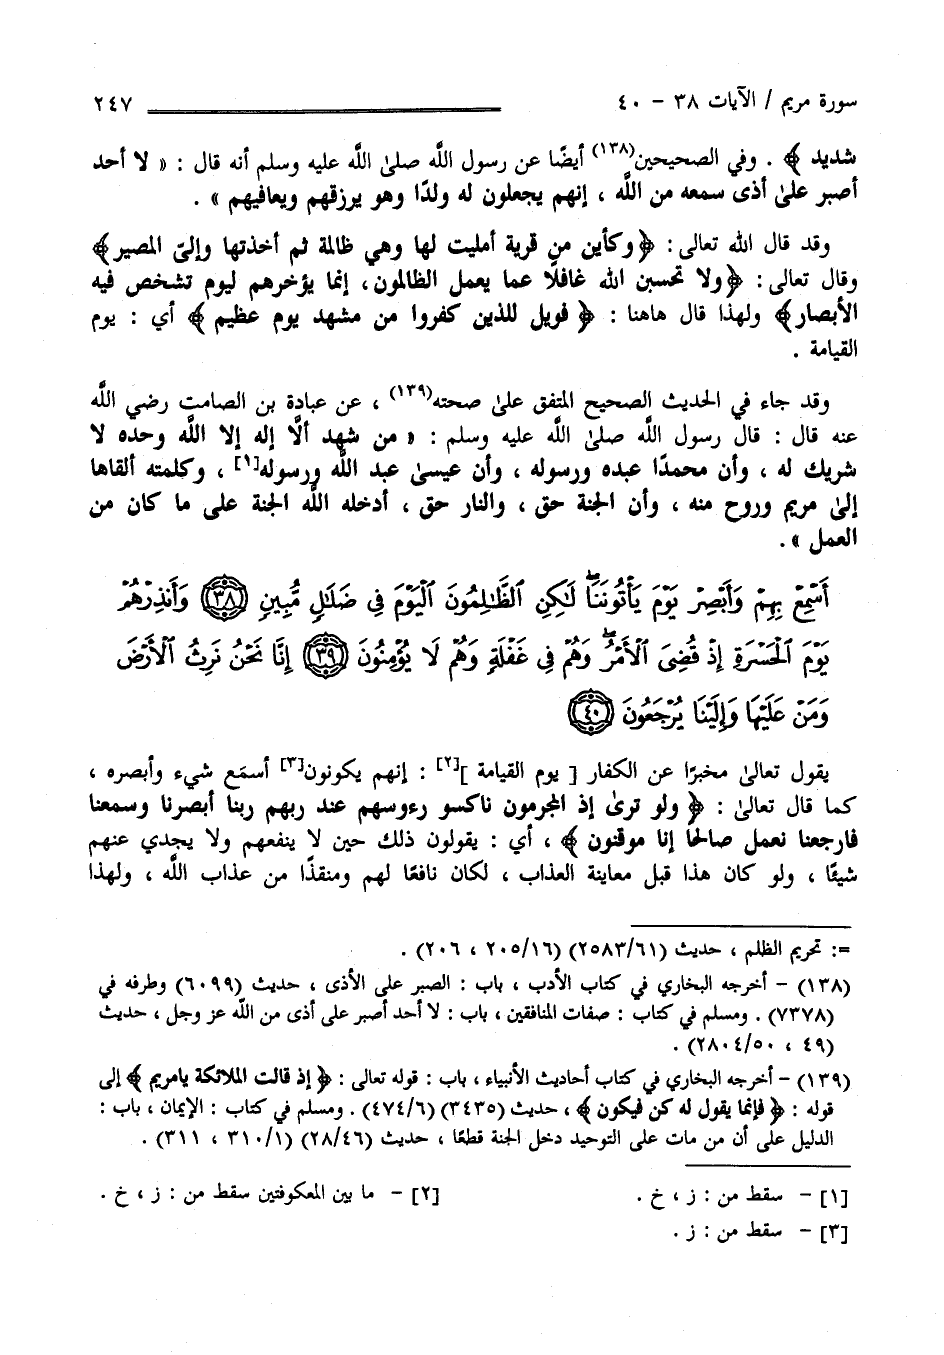 سورة مريم / الآيات ٣٨ - ٤٠ ٢٤٧
شديد ﴾ . وفي الصحيحين(١٣٨) أيضًا عن رسول اللَّه صلىٰ اللَّه عليه وسلم أنه قال : « لا أحد
أصبر علىٰ أذى سمعه من اللَّه ، إنهم يجعلون له ولدًا وهو يرزقهم ويعافيهم » .
وقد قال الله تعالى : ﴿ وكأين من قرية أمليت لها وهي ظالمة ثم أخذتها وإليّ المصير﴾
وقال تعالى : ﴿ولا تحسبن الله غافلًا عما يعمل الظالمون، إنما يؤخرهم ليوم تشخص فيه
الأبصار﴾ ولهذا قال هاهنا : ﴿ فويل للذين كفروا من مشهد يوم عظيم ﴾ أي : يوم
القيامة .
وقد جاء في الحديث الصحيح المتفق علىٰ صحته(١٣٩) ، عن عبادة بن الصامت رضي اللَّه
عنه قال : قال رسول اللَّه صلىٰ اللَّه عليه وسلم : « من شهد ألَّا إله إلا اللَّه وحده لا
شريك له ، وأن محمدًا عبده ورسوله ، وأن عيسىٰ عبد اللَّه ورسوله[١] ، وكلمته ألقاها
إلىٰ مريم وروح منه ، وأن الجنة حق ، والنار حق ، أدخله اللَّه الجنة على ما كان من
العمل » .
أَسْمِعْ بِهِمْ وَأَبْصِرْ يَوْمَ يَأْتُونَنَاۖ لَٰكِنِ ٱلظَّٰلِمُونَ ٱلْيَوْمَ فِى ضَلَٰلٍ مُّبِينٍ ٣٨ وَأَنذِرْهُمْ
يَوْمَ ٱلْحَسْرَةِ إِذْ قُضِىَ ٱلْأَمْرُۖ وَهُمْ فِى غَفْلَةٍ وَهُمْ لَا يُؤْمِنُونَ ٣٩ إِنَّا نَحْنُ نَرِثُ ٱلْأَرْضَ
وَمَنْ عَلَيْهَا وَإِلَيْنَا يُرْجَعُونَ ٤٠
يقول تعالىٰ مخبرًا عن الكفار [ يوم القيامة ][٢] : إنهم يكونون[٣] أسمَع شيء وأبصره ،
كما قال تعالىٰ : ﴿ ولو ترىٰ إذ المجرمون ناكسو رءوسهم عند ربهم ربنا أبصرنا وسمعنا
فارجعنا نعمل صالحًا إنا موقنون ﴾ ، أي : يقولون ذلك حين لا ينفعهم ولا يجدي عنهم
شيئًا ، ولو كان هذا قبل معاينة العذاب ، لكان نافعًا لهم ومنقذًا من عذاب اللَّه ، ولهذا
=: تحريم الظلم ، حديث (٢٥٨٣/٦١) (٢٠٥/١٦ ، ٢٠٦) .
(١٣٨) - أخرجه البخاري في كتاب الأدب ، باب : الصبر على الأذى ، حديث (٦٠٩٩) وطرفه في
(٧٣٧٨) . ومسلم في كتاب : صفات المنافقين ، باب : لا أحد أصبر على أذى من اللَّه عز وجل ، حديث
(٤٩ ، ٢٨٠٤/٥٠) .
(١٣٩) - أخرجه البخاري في كتاب أحاديث الأنبياء ، باب : قوله تعالى : ﴿ إذ قالت الملائكة يامريم ﴾ إلى
قوله : ﴿ فإنما يقول له كن فيكون ﴾ ، حديث (٣٤٣٥) (٤٧٤/٦) . ومسلم في كتاب : الإيمان ، باب :
الدليل على أن من مات على التوحيد دخل الجنة قطعًا ، حديث (٢٨/٤٦) (٣١٠/١ ، ٣١١) .
[١] - سقط من : ز ، خ . [٢] - ما بين المعكوفتين سقط من : ز ، خ .
[٣] - سقط من : ز .